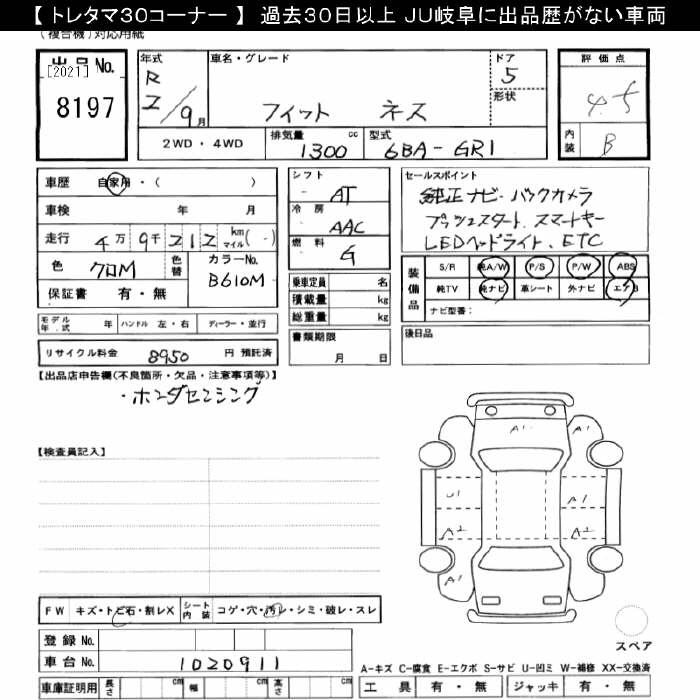 【 トレタマ30コーナー 】 過去30日以上 JU岐阜に出品歴がない車両
（複合機）対応用紙
出品 No.
[2021]
8197
年式
R
2/9月
車名・グレード
フィット ネス
ドア
5
形状
評価点
4.5
内装
B
2WD・4WD
排気量 cc
1300
型式
6BA-GR1
車歴 自家用・( )
車検 年 月
走行 4万 9千 212 km マイル (-)
色 クロM
色替
カラーNo.
B610M
保証書 有・無
シフト
AT
冷房
AAC
燃料
G
乗車定員 名
積載量 kg
総重量 kg
セールスポイント
純正ナビ・バックカメラ
プッシュスタート、スマートキー
LEDヘッドライト、ETC
装備品
S/R 純A/W P/S P/W ABS
純TV 純ナビ 革シート 外ナビ エアB
ナビ型番：
モデル年.式 年 ハンドル 左・右 ディーラー・並行
リサイクル料金 8950 円 預託済
書類期限
月 日
後日品
【出品店申告欄(不良箇所・欠品・注意事項等)】
・ホンダセンシング
【検査員記入】
A1 A1
U1 A1
A2 A2
A1
FW キズ・トビ石・割レX シート内装 コゲ・穴・汚レ・シミ・破レ・スレ
登録 No.
車台 No. 1020911
スペア
A−キズ C−腐食 E−エクボ S−サビ U−凹ミ W−補修 XX−交換済
車庫証明用 長さ cm 幅 cm 高さ cm
工具 有・無 ジャッキ 有・無